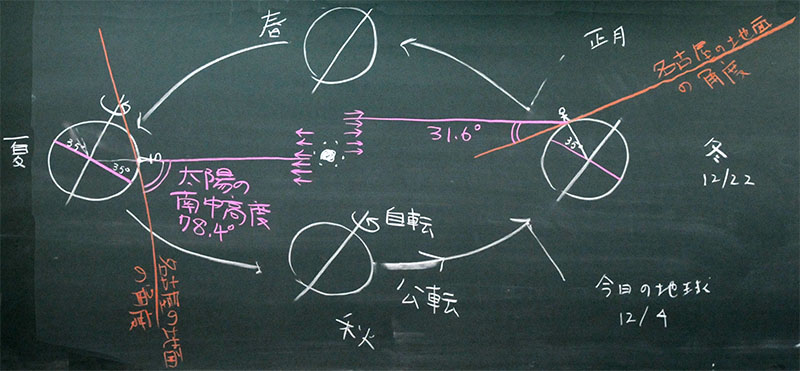 春
正月
名古屋の地面
の角度
夏
35°
35°
31.6°
35°
冬
12/22
太陽の
南中高度
78.4°
自転
公転
名古屋の地面
の角度
秋
今日の地球
12/4